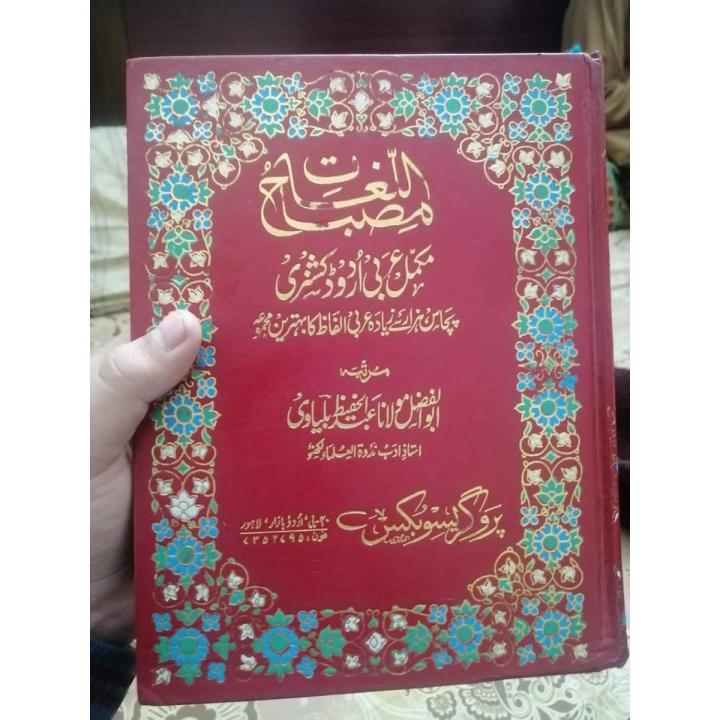 مصباح اللغات
مکمل عربی اردو ڈکشنری
پچاس ہزار سے زیادہ عربی الفاظ کا بہترین مجموعہ
مرتبہ
ابوالفضل مولانا عبدالحفیظ بلیاوی
استاذ ادب ندوۃ العلماء لکھنؤ
پروگریسو بکس
۴۰-بی، اردو بازار، لاہور
فون: ۷۳۵۲۷۹۵